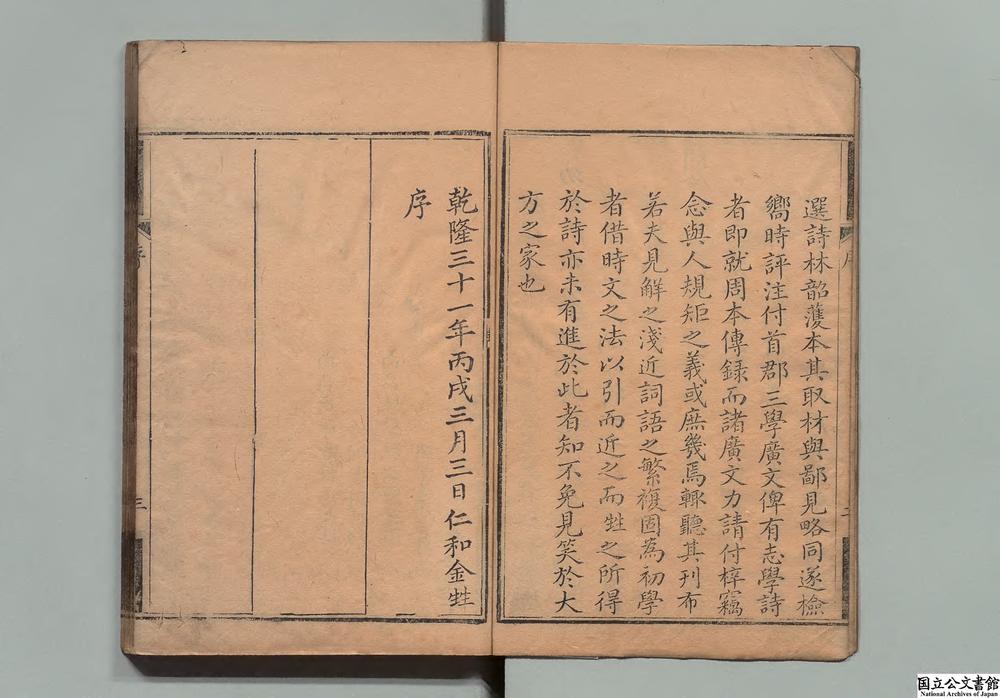 選詩林韶濩本其取材與鄙見略同遂檢
嚮時評注付首郡三學廣文俾有志學詩
者即就周本傳錄而諸廣文力請付梓竊
念與人規矩之義或庶幾焉輒聽其刊布
若夫見解之淺近詞語之繁複固為初學
者借時文之法以引而近之而甡之所得
於詩亦未有進於此者知不免見笑於大
方之家也
乾隆三十一年丙戌三月三日仁和金甡
序
序
三
国立公文書館
National Archives of Japan